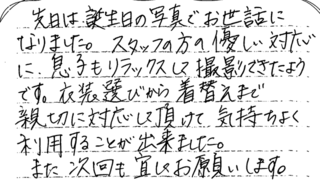 先日は誕生日の写真でお世話に
なりました。スタッフの方の優しい対応
に、息子もリラックスして撮影できたよう
です。衣装選びから着替えまで
親切に対応して頂けて、気持ちよく
利用することが出来ました。
また次回も宜しくお願いします。